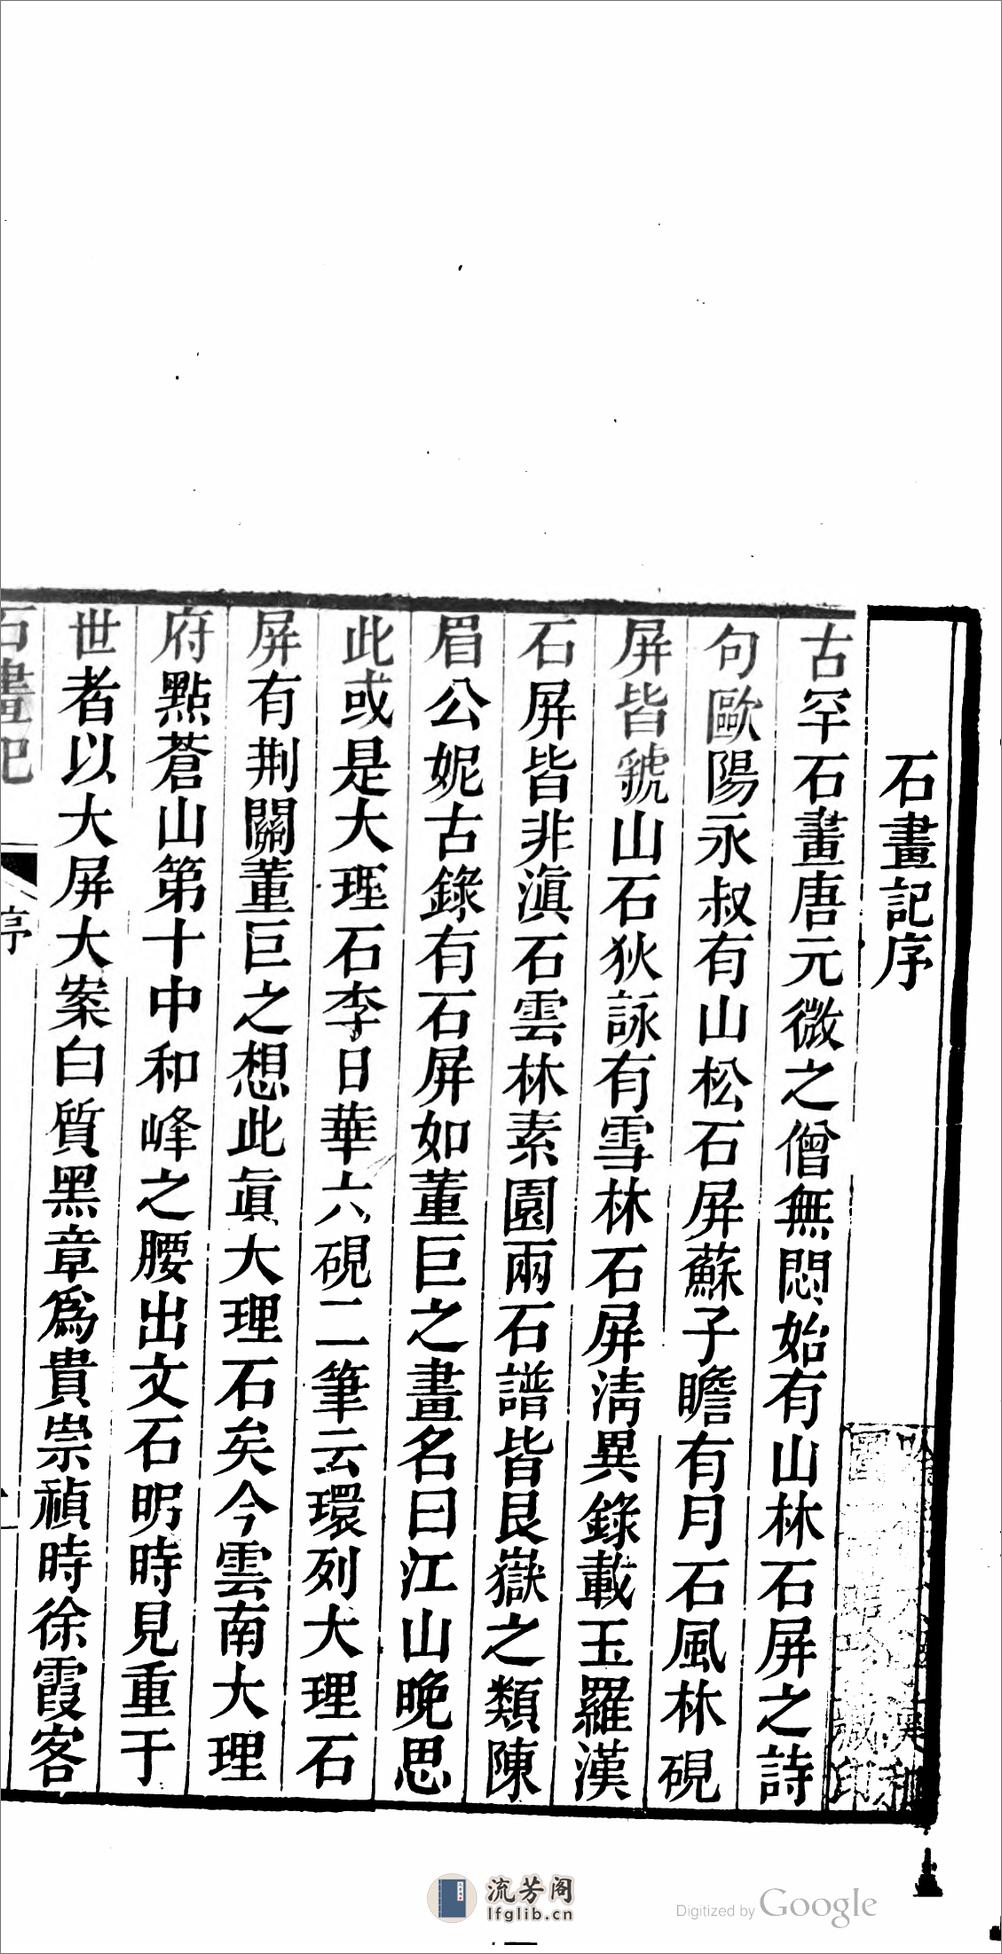 石畫記序
古罕石畫唐元微之僧無悶始有山林石屏之詩
句歐陽永叔有山松石屏蘇子瞻有月石風林硯
屏皆虢山石狄詠有雪林石屏清異錄載玉羅漢
石屏皆非滇石雲林素園兩石譜皆艮嶽之類陳
眉公妮古錄有石屏如董巨之畫名曰江山晚思
此或是大理石李日華六硯二筆云環列大理石
屏有荆關董巨之想此眞大理石矣今雲南大理
府點蒼山第十中和峰之腰出文石明時見重于
世者以大屏大案白質黑章爲貴崇禎時徐霞客
石畫記 序
流芳阁
lfglib.cn
Digitized by Google